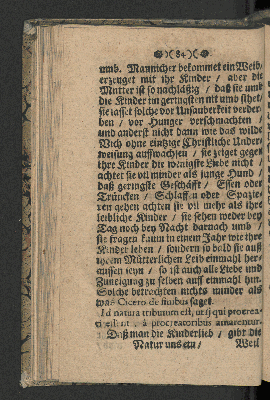 )( 84 )(
umb. Mannicher bekommet ein Weib /
erzeuget mit ihr Kinder / aber die
Mutter ist so nachläßig / daß sie umb
die Kinder im geringsten nit umb sihet /
sie lasset solche vor Unsauberkeit verder-
ben / vor Hunger verschmachten /
und anderst nicht dann wie das wilde
Vich ohne eintzige Christliche Under-
weisung auffwachsen / sie zeiget gegen
ihre Kinder die wenigste Liebe nicht /
achtet sie vil minder als junge Hund /
das geringste Geschäfft / Essen oder
Trincken / Schlaffen oder Spazie-
ren gehen achten sie vil mehr als ihre
leibliche Kinder / sie sehen weder bey
Tag noch bey Nacht darnach umb /
sie fragen kaum in einem Jahr wie ihre
Kinder leben / sondern so bald sie auß
ihrem Mütterlichen Leib einmahl her-
außen seyn / so ist auch alle Liebe und
Zuneigung zu selben auff einmahl hin.
Solche betrachten nichts minder als
was Cicero de finibus saget.
Id natura tributum est, ut ij qui procrea-
ti essent, à procreatoribus amarentur.
Daß man die Kinder lieb / gibt die
Natur uns ein /
Weil